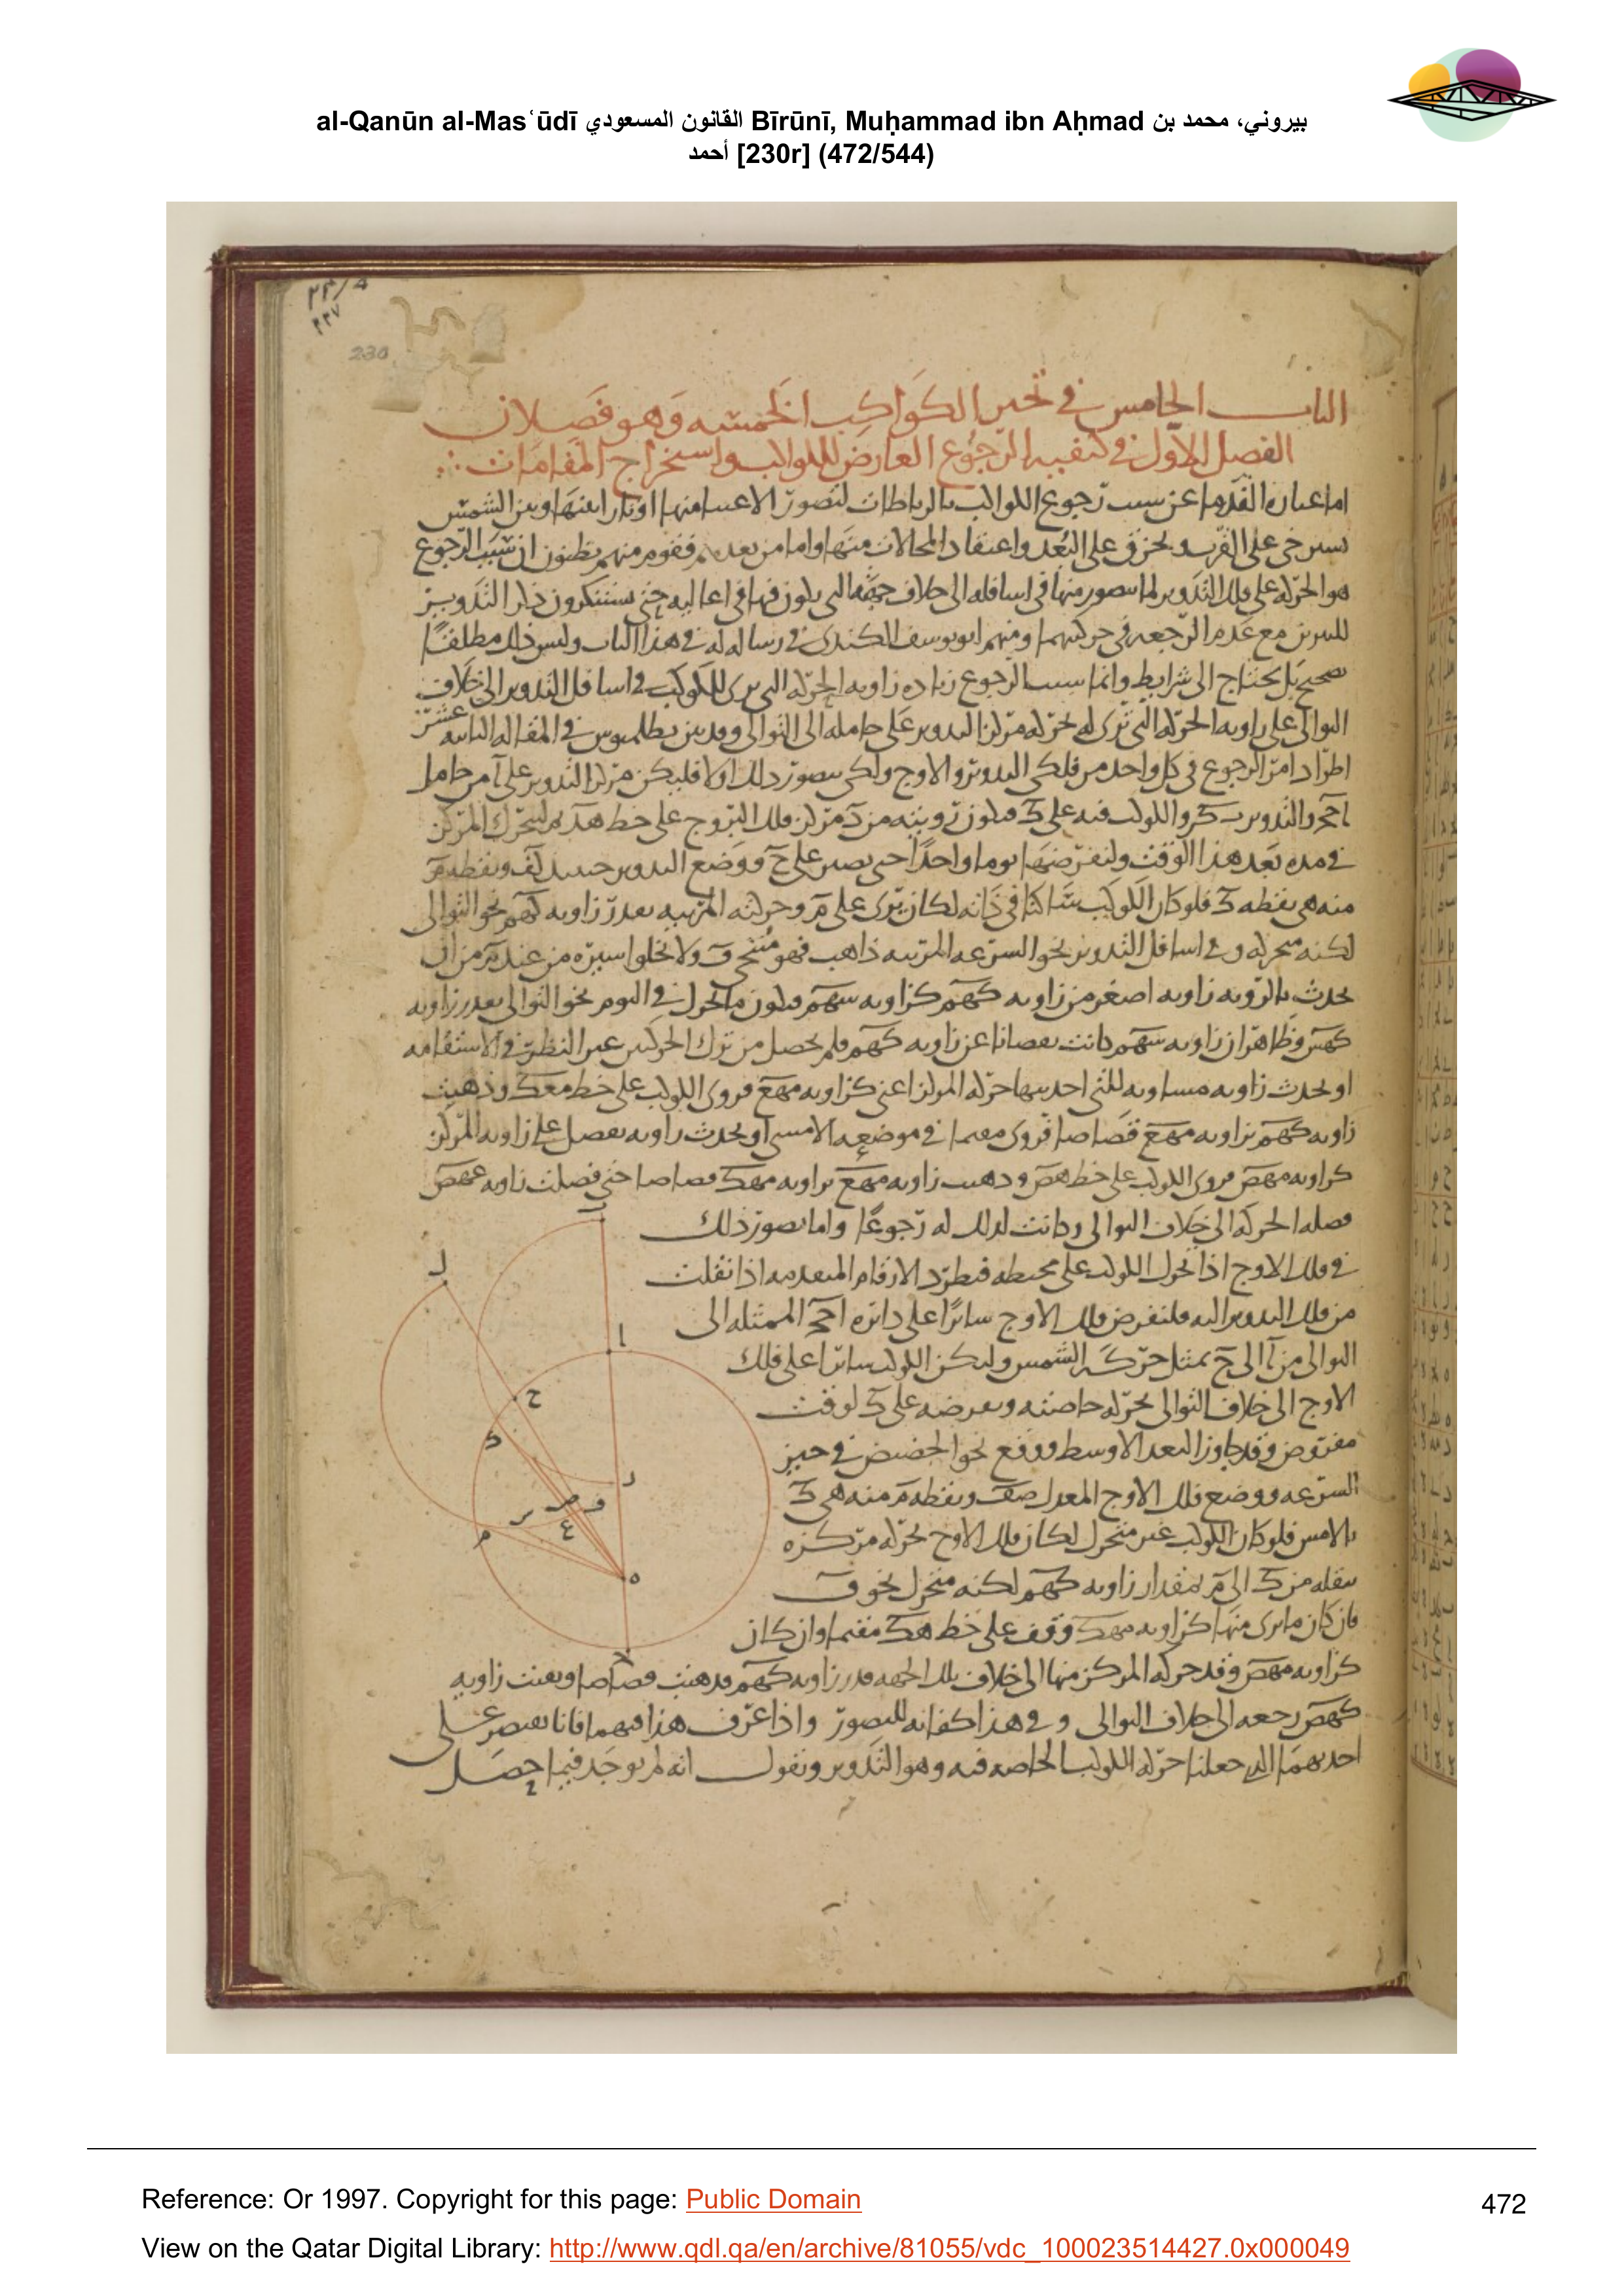 al-Qanūn al-Mas‘ūdī القانون المسعودي Bīrūnī, Muḥammad ibn Aḥmad بيروني، محمد بن
أحمد [230r] (472/544)
230
الباب الخامس في تحير الكواكب الخمسة وهو فصلان
الفصل الاول في كيفية الرجوع العارض للكواكب واستخراج المقامات
اما عبارة القدماء عن سبب رجوع الكواكب بالرباطات لتصور الاعيا منها اوتارا بينها وبين الشمس
تسترخي على القرب وتحزق على البعد واعتقاد المحالات منها واما من بعدهم فقوم منهم يظنون ان سبب الرجوع
هو الحركة على فلك التدوير لما يتصور منها في اسافله الى خلاف جهة التي يكون فيها في اعاليه حتى يستنكرون ذكر التدوير
للنيرين مع عدم الرجعة في حركتيهما ومنهم ابو يوسف الكندي في رسالة له في هذا الباب وليس ذلك مطلقا
صحيح بل يحتاج الى شرايط وانما سبب الرجوع زيادة زاوية الحركة التي يرى للكوكب في اسافل التدوير الى خلاف
التوالي على زاوية الحركة التي ترى له بحركة مركز التدوير على حامله الى التوالي وقد بين بطلميوس في المقالة الثانية عشر
اطراد امر الرجوع في كل واحد من فلكي التدوير والاوج ولكي يتصور ذلك اولا فليكن مركز التدوير على آ من حامل
احج والتدوير ب ك ر والكوكب فيه على ك فيكون رويته من ه مركز فلك البروج على خط هك ثم ليتحرك المركز
في مدة بعد هذا الوقت ولنفرضها يوما واحدا حتى يصير على ح ووضع التدوير حينئذ لف ونقطة م
منه هي نقطة ك فلو كان الكوكب ساكنا في ذاته لكان يرى على م وحركته المرئية بقدر زاوية كهم نحو التوالي
لكنه متحرك وفي اسافل التدوير نحو السرعة المرئية ذاهب فهو منتح ف ولا يخلوا سيره من عند م من ان
يحدث بالروية زاوية اصغر من زاوية كهم كزاوية سهم فيكون ما تحرك في اليوم نحو التوالي بقدر زاوية
كهس وظاهر ان زاوية سهم كانت نقصانا عن زاوية كهم فلم يحصل من ترك الحركتين غير النظر في الاستقامة
او يحدث زاوية مساوية للتي احدثتها حركة المركز اعني كزاوية مهع فروى الكوكب على خط معك وذهبت
زاوية كهم بزاوية مهع قصاصا فروى مقيما في موضعه الامسي او يحدث زاوية تفضل على زاوية المركز
كزاوية مهص فروى الكوكب على خط هص وذهبت زاوية مهع بزاوية مهك قصاصا حتى فضلت زاوية عهص
فضلة الحركة الى خلاف التوالي وكانت لذلك له رجوعا واما تصور ذلك
في فلك الاوج اذا تحرك الكوكب على محيطه فتطرد الارقام المتقدمة اذا نقلت
من فلك التدوير اليه فلنفرض فلك الاوج سائرا على دائرة احج الممثلة الى
التوالي من آ الى ح بمثل حركة الشمس وليكن الكوكب سائرا على فلك
الاوج الى خلاف التوالي بحركة خاصته ونفرضه على ك لوقت
مفروض وقد جاوز البعد الاوسط ووقع نحو الحضيض في حيز
السرعة ووضع فلك الاوج المعدل صف ونقطة م منه هي ك
بالامس فلو كان الكوكب غير متحرك لكان فلك الاوج بحركة مركزه
ينقله من ك الى م بمقدار زاوية كهم لكنه متحرك نحو ف
فان كان ما يرى منها كزاوية مهك وقف على خط هك مقيما وان كان
كزاوية مهص وقد حركه المركز منها الى خلاف تلك الجهة قدر زاوية كهم فذهبت قصاصا وبقيت زاوية
كهص رجعه الى خلاف التوالي وفي هذا كفاية للتصور واذا عرف هذا فيهما فانا نقتصر على
احدهما الذي جعلنا حركة الكوكب الخاصة فيه وهو التدوير ونقول انه لم يوجد فيما حصل
Reference: Or 1997. Copyright for this page: Public Domain
472
View on the Qatar Digital Library: http://www.qdl.qa/en/archive/81055/vdc_100023514427.0x000049